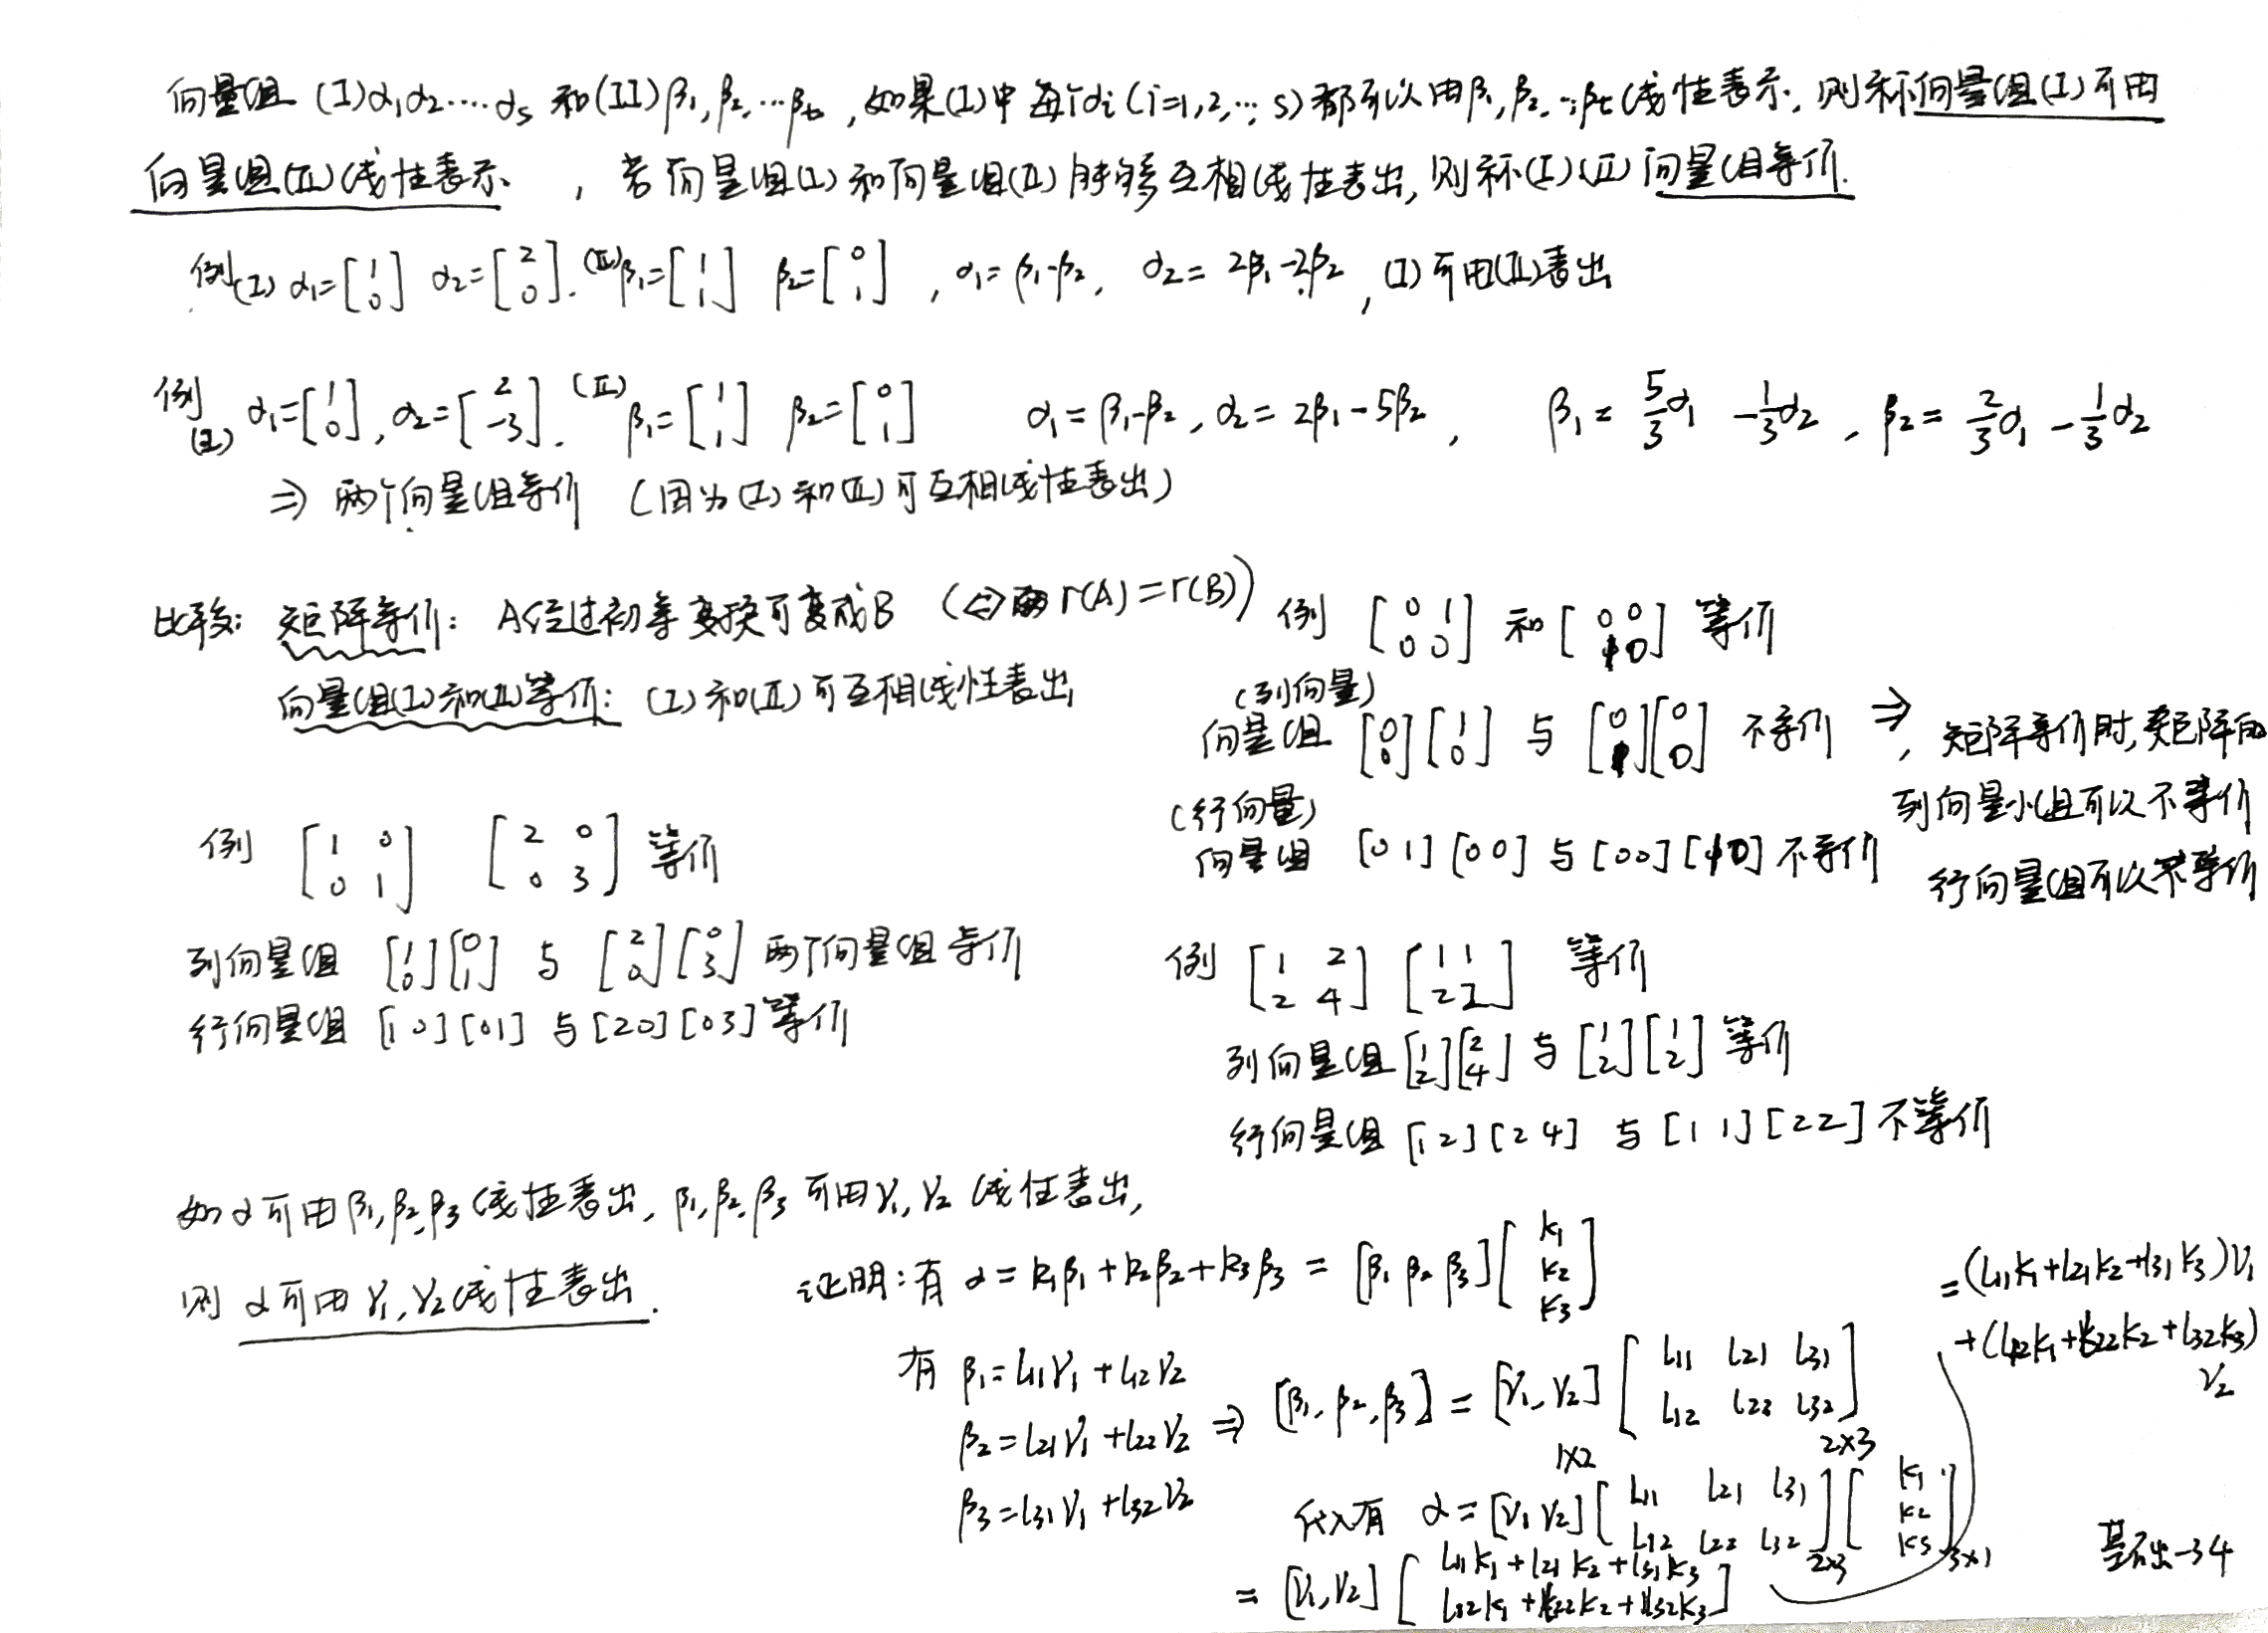 向量组 (I)α₁α₂····αs 和(II)β₁,β₂,···βt ,如果(I)中每个αi(i=1,2,···, s)都可以由β₁,β₂,··,βt线性表示, 则称向量组(I)可由
向量组(II)线性表示 , 若向量组(I)和向量组(II)能够互相线性表出, 则称(I)(II)向量组等价.
例(I) α₁=[1 0] α₂=[2 0]. (II)β₁=[1 1] β₂=[0 1] , α₁=β₁-β₂, α₂=2β₁-2β₂, (I)可由(II)表出
例(I) α₁=[1 0], α₂=[2 -3]. (II)β₁=[1 1] β₂=[0 1] α₁=β₁-β₂, α₂=2β₁-5β₂, β₁=5/3α₁-1/3α₂, β₂=2/3α₁-1/3α₂
⇒ 两个向量组等价 (因为(I)和(II)可互相线性表出)
比较: 矩阵等价: A经过初等变换可变成B (⇔ r(A)=r(B))
向量组(I)和(II)等价: (I)和(II)可互相线性表出
例 [0 1 0 0] 和 [0 0 1 0] 等价
(列向量)
向量组 [0 0][1 0] 与 [0 1][0 0] 不等价 ⇒, 矩阵等价时,矩阵的
列向量小组可以不等价
(行向量)
向量组 [0 1][0 0] 与 [0 0][1 0] 不等价
行向量组可以不等价
例 [1 0 0 1] [2 0 0 3] 等价
列向量组 [1 0][0 1] 与 [2 0][0 3] 两个向量组等价
行向量组 [1 0][0 1] 与 [2 0][0 3] 等价
例 [1 2 2 4] [1 1 2 2] 等价
列向量组 [1 2][2 4] 与 [1 2][1 2] 等价
行向量组 [1 2][2 4] 与 [1 1][2 2] 不等价
如α可由β₁,β₂,β₃线性表出, β₁,β₂,β₃可由γ₁,γ₂线性表出,
则 α可由γ₁,γ₂线性表出.
证明:有 α=k₁β₁+k₂β₂+k₃β₃ = [β₁ β₂ β₃][k₁ k₂ k₃]
有 β₁=l₁₁γ₁+l₁₂γ₂
β₂=l₂₁γ₁+l₂₂γ₂ ⇒ [β₁,β₂,β₃]=[γ₁,γ₂]1×2 [l₁₁ l₂₁ l₃₁ l₁₂ l₂₂ l₃₂]2×3
β₃=l₃₁γ₁+l₃₂γ₂
代入有 α=[γ₁ γ₂][l₁₁ l₂₁ l₃₁ l₁₂ l₂₂ l₃₂]2×3 [k₁ k₂ k₃]3×1
= [γ₁,γ₂][l₁₁k₁+l₂₁k₂+l₃₁k₃ l₁₂k₁+l₂₂k₂+l₃₂k₃]
=(l₁₁k₁+l₂₁k₂+l₃₁k₃)γ₁
+(l₁₂k₁+l₂₂k₂+l₃₂k₃)
γ₂
基础-34